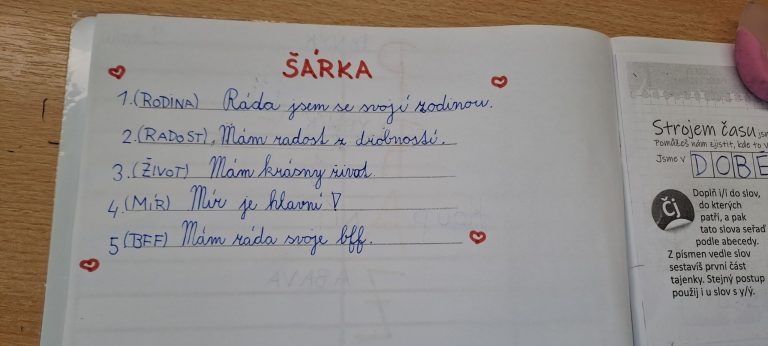 ŠÁRKA
1.(RODINA) Ráda jsem se svojí rodinou.
2.(RADOST) Mám radost z drobností.
3.(ŽIVOT) Mám krásny život.
4.(MÍR) Mír je hlavní !
5(BFF) Mám ráda svoje bff.
ZÁBAVA
Strojem času jsm
Pomůžeš nám zjistit, kde to v
Jsme v DOBĚ
čj
Doplň i/í do slov,
do kterých
patří, a pak
tato slova seřaď
podle abecedy.
Z písmen vedle slov
sestavíš první část
tajenky. Stejný postup
použij i u slov s y/ý.